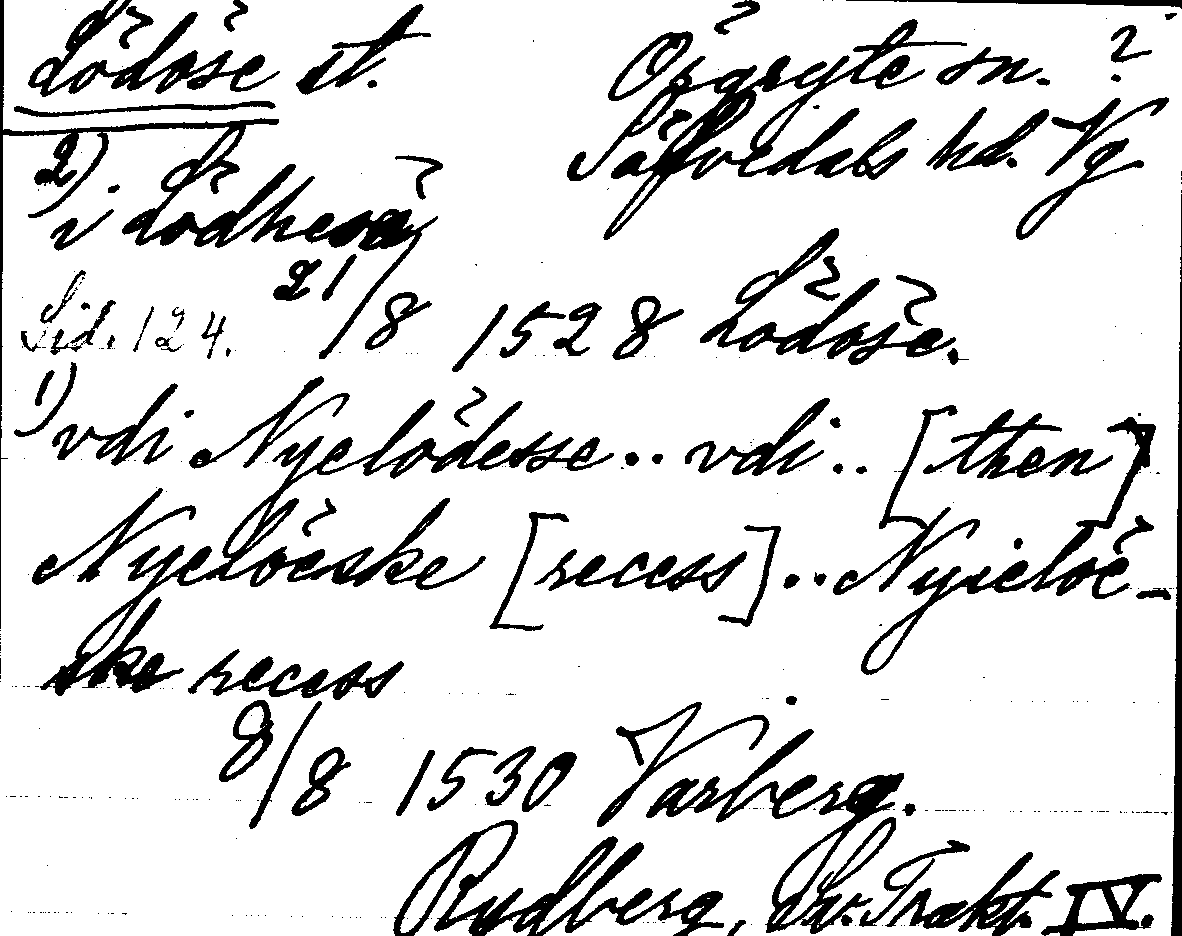 Lödöse st. Örgryte sn. ?
Säfvedals hd. Vg
2). i Lödheså
Sid. 124. 21/8 1528 Lödöse.
1) vdi Nyelödesse .. vdi .. [then]
Nyelöeske [recess] .. Nyieløe-
ske recess
8/8 1530 Varberg.
Rydberg, Sv. Trakt. IV.